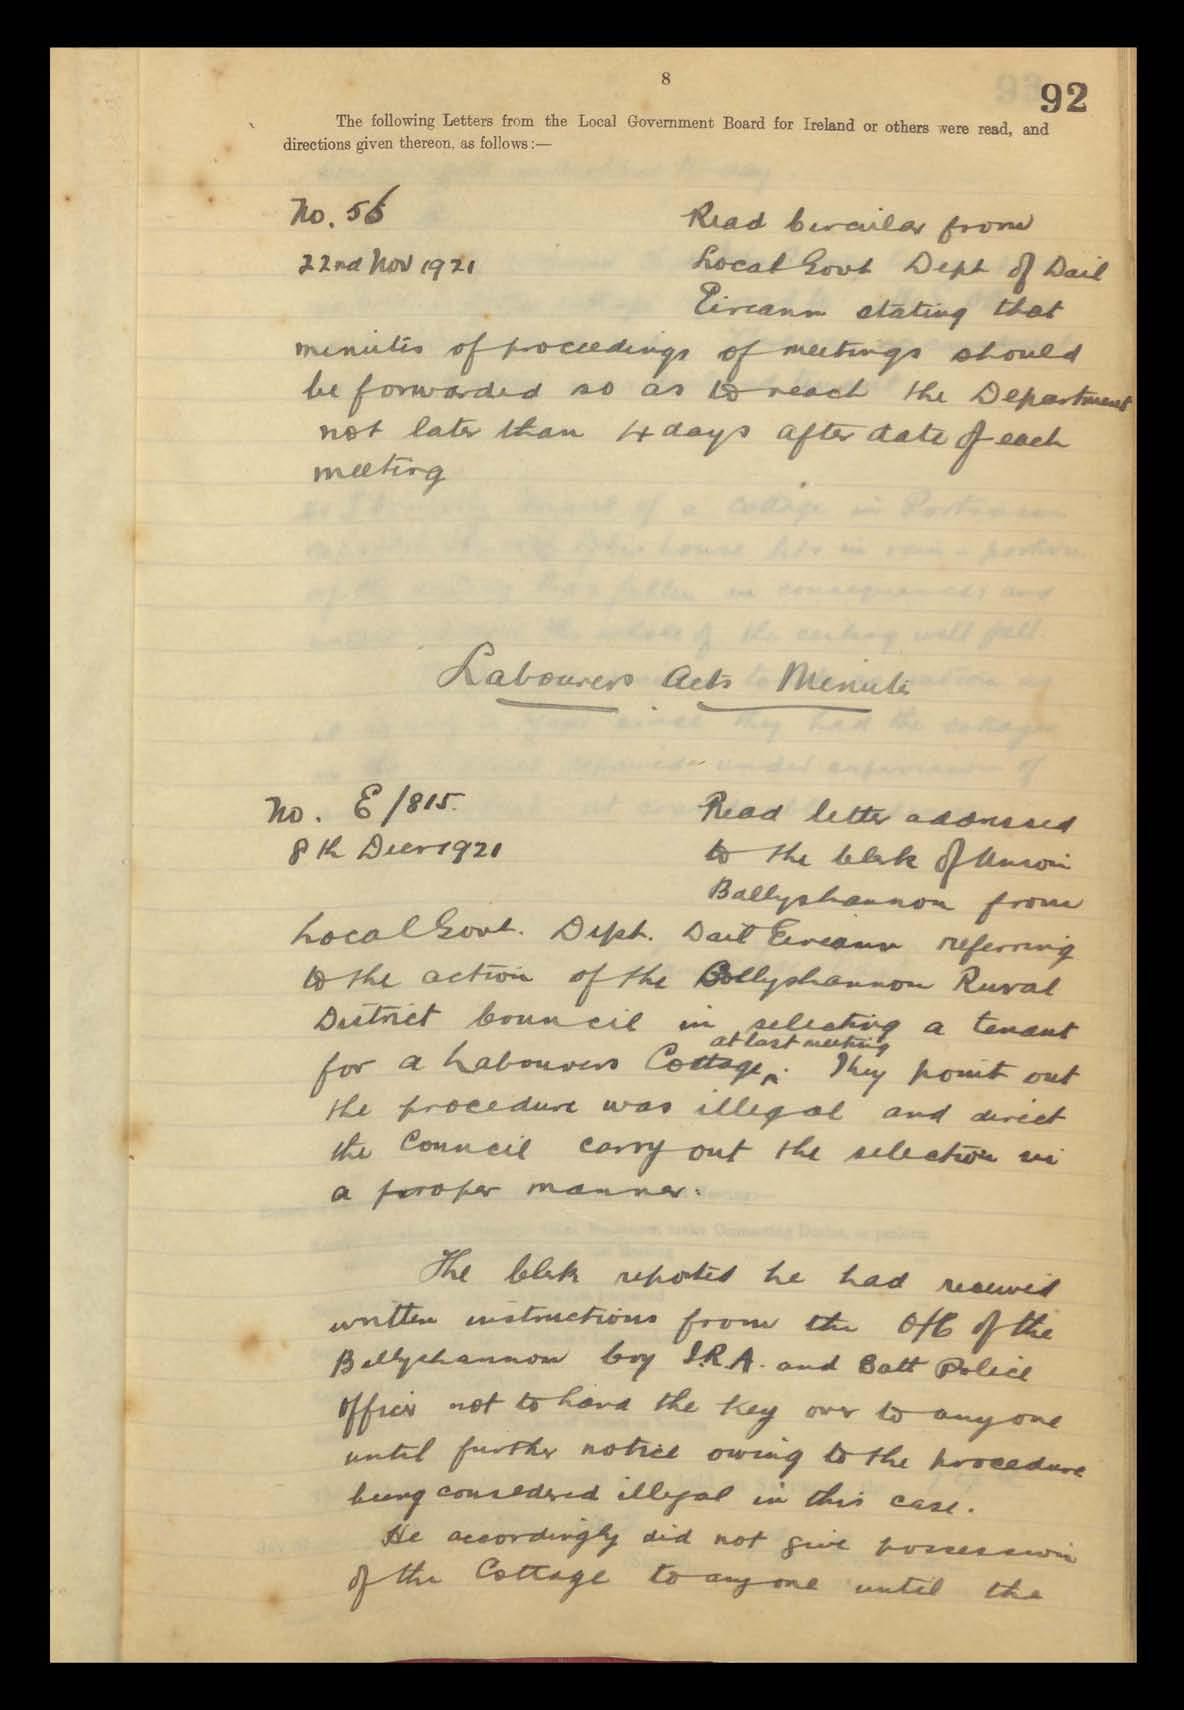 8
92
The following Letters from the Local Government Board for Ireland or others were read, and
directions given thereon, as follows:—
No. 56
Read Circular from
22nd Nov 1921
Local Govt Dept of Dail
Eireann stating that
minutes of proceedings of meetings should
be forwarded so as to reach the Department
not later than 4 days after date of each
meeting
Labourers Acts Minute
No. E/815.
Read letter addressed
8th Decr 1921
to the Clerk of Union
Ballyshannon from
Local Govt. Dept. Dail Eireann referring
to the action of the Ballyshannon Rural
District Council in selecting a tenant
at last meeting
for a Labourers Cottage. They point out
the procedure was illegal and direct
the Council carry out the selection in
a proper manner.
The Clerk reported he had received
written instructions from the O/C of the
Ballyshannon Coy I.R.A. and Batt Police
Officer not to hand the key over to anyone
until further notice owing to the procedure
being considered illegal in this case.
He accordingly did not give possession
of the Cottage to anyone until the